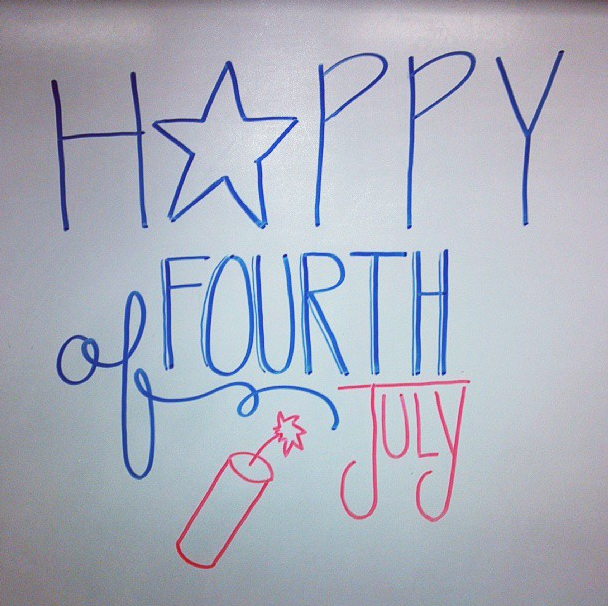 HAPPY
FOURTH
of
JULY